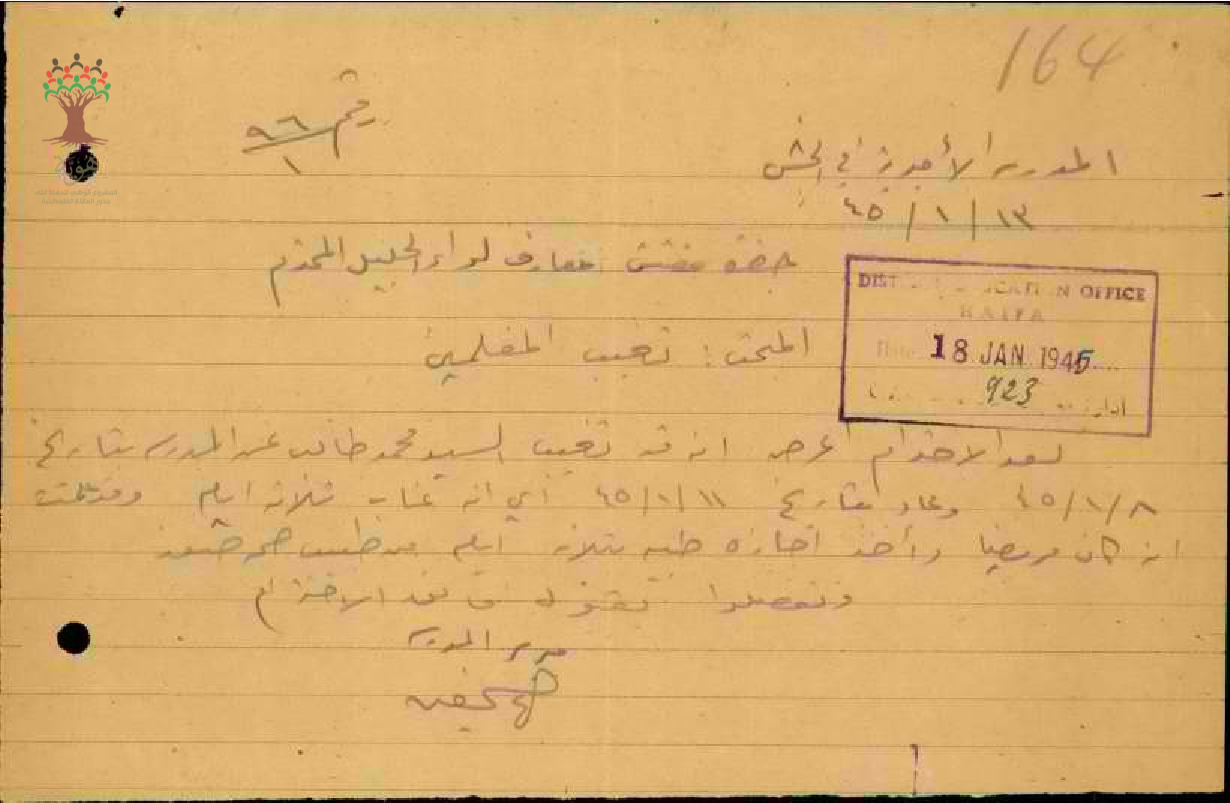 164
رقم ٩٦/١
المدرسة الأميرية في الجش
١٣ / ١ / ٤٥
حضرة مفتش معارف لواء الجليل المحترم
DISTRICT EDUCATION OFFICE
HAIFA
Date 18 JAN 1945
923
المبحث : تغيب المعلمين
بعد الاحترام أعرض انه قد تغيب السيد محمد طالب عن المدرسة بتاريخ
٤٥/١/٨ وعاد بتاريخ ٤٥/١/١١ أي انه غاب ثلاثة ايام
انه كان مريضا وأخذ اجازة طبية بثلاثة ايام من طبيب صحة صفد
وتفضلوا بقبول فائق الاحترام
مدير المدرسة